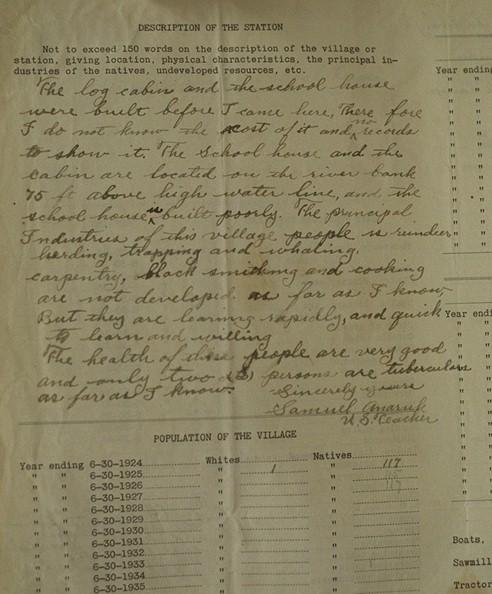 DESCRIPTION OF THE STATION
Not to exceed 150 words on the description of the village or
station, giving location, physical characteristics, the principal in-
dustries of the natives, undeveloped resources, etc.
The log cabin and the school house
were built before I came here, There fore
I do not know the cost of it and no records
to show it. The School house and the
cabin are located on the river bank
75 ft above high water line, and the
school house is built poorly. The principal
Industries of this village people is reindeer
herding, trapping and whaling.
carpentry, black smithing and cooking
are not developed as far as I know,
But they are learning rapidly, and quick
to learn and willing
The health of these people are very good
and only two (2) persons are tuberculars
as far as I know.
Sincerely yours
Samuel Anaruk
U.S. Teacher
POPULATION OF THE VILLAGE
Year ending 6-30-1924 Whites 1 Natives 117
" " 6-30-1925 " "
" " 6-30-1926 " "
" " 6-30-1927 " "
" " 6-30-1928 " "
" " 6-30-1929 " "
" " 6-30-1930 " "
" " 6-30-1931 " "
" " 6-30-1932 " "
" " 6-30-1933 " "
" " 6-30-1934 " "
" " 6-30-1935 " "
Year ending
Year ending
Boats,
Sawmill
Tractor